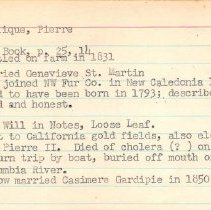 tique, Pierre
Book, p. 25, 14
tled on farm in 1831
ried Genevieve St. Martin
joined NW Fur Co. in New Caledonia
d to have been born in 1793; describe
d and honest.
Will in Notes, Loose Leaf.
t to California gold fields, also el
Pierre II. Died of cholera (?) on
urn trip by boat, buried off mouth o
umbia River.
ow married Casimere Gardipie in 1850